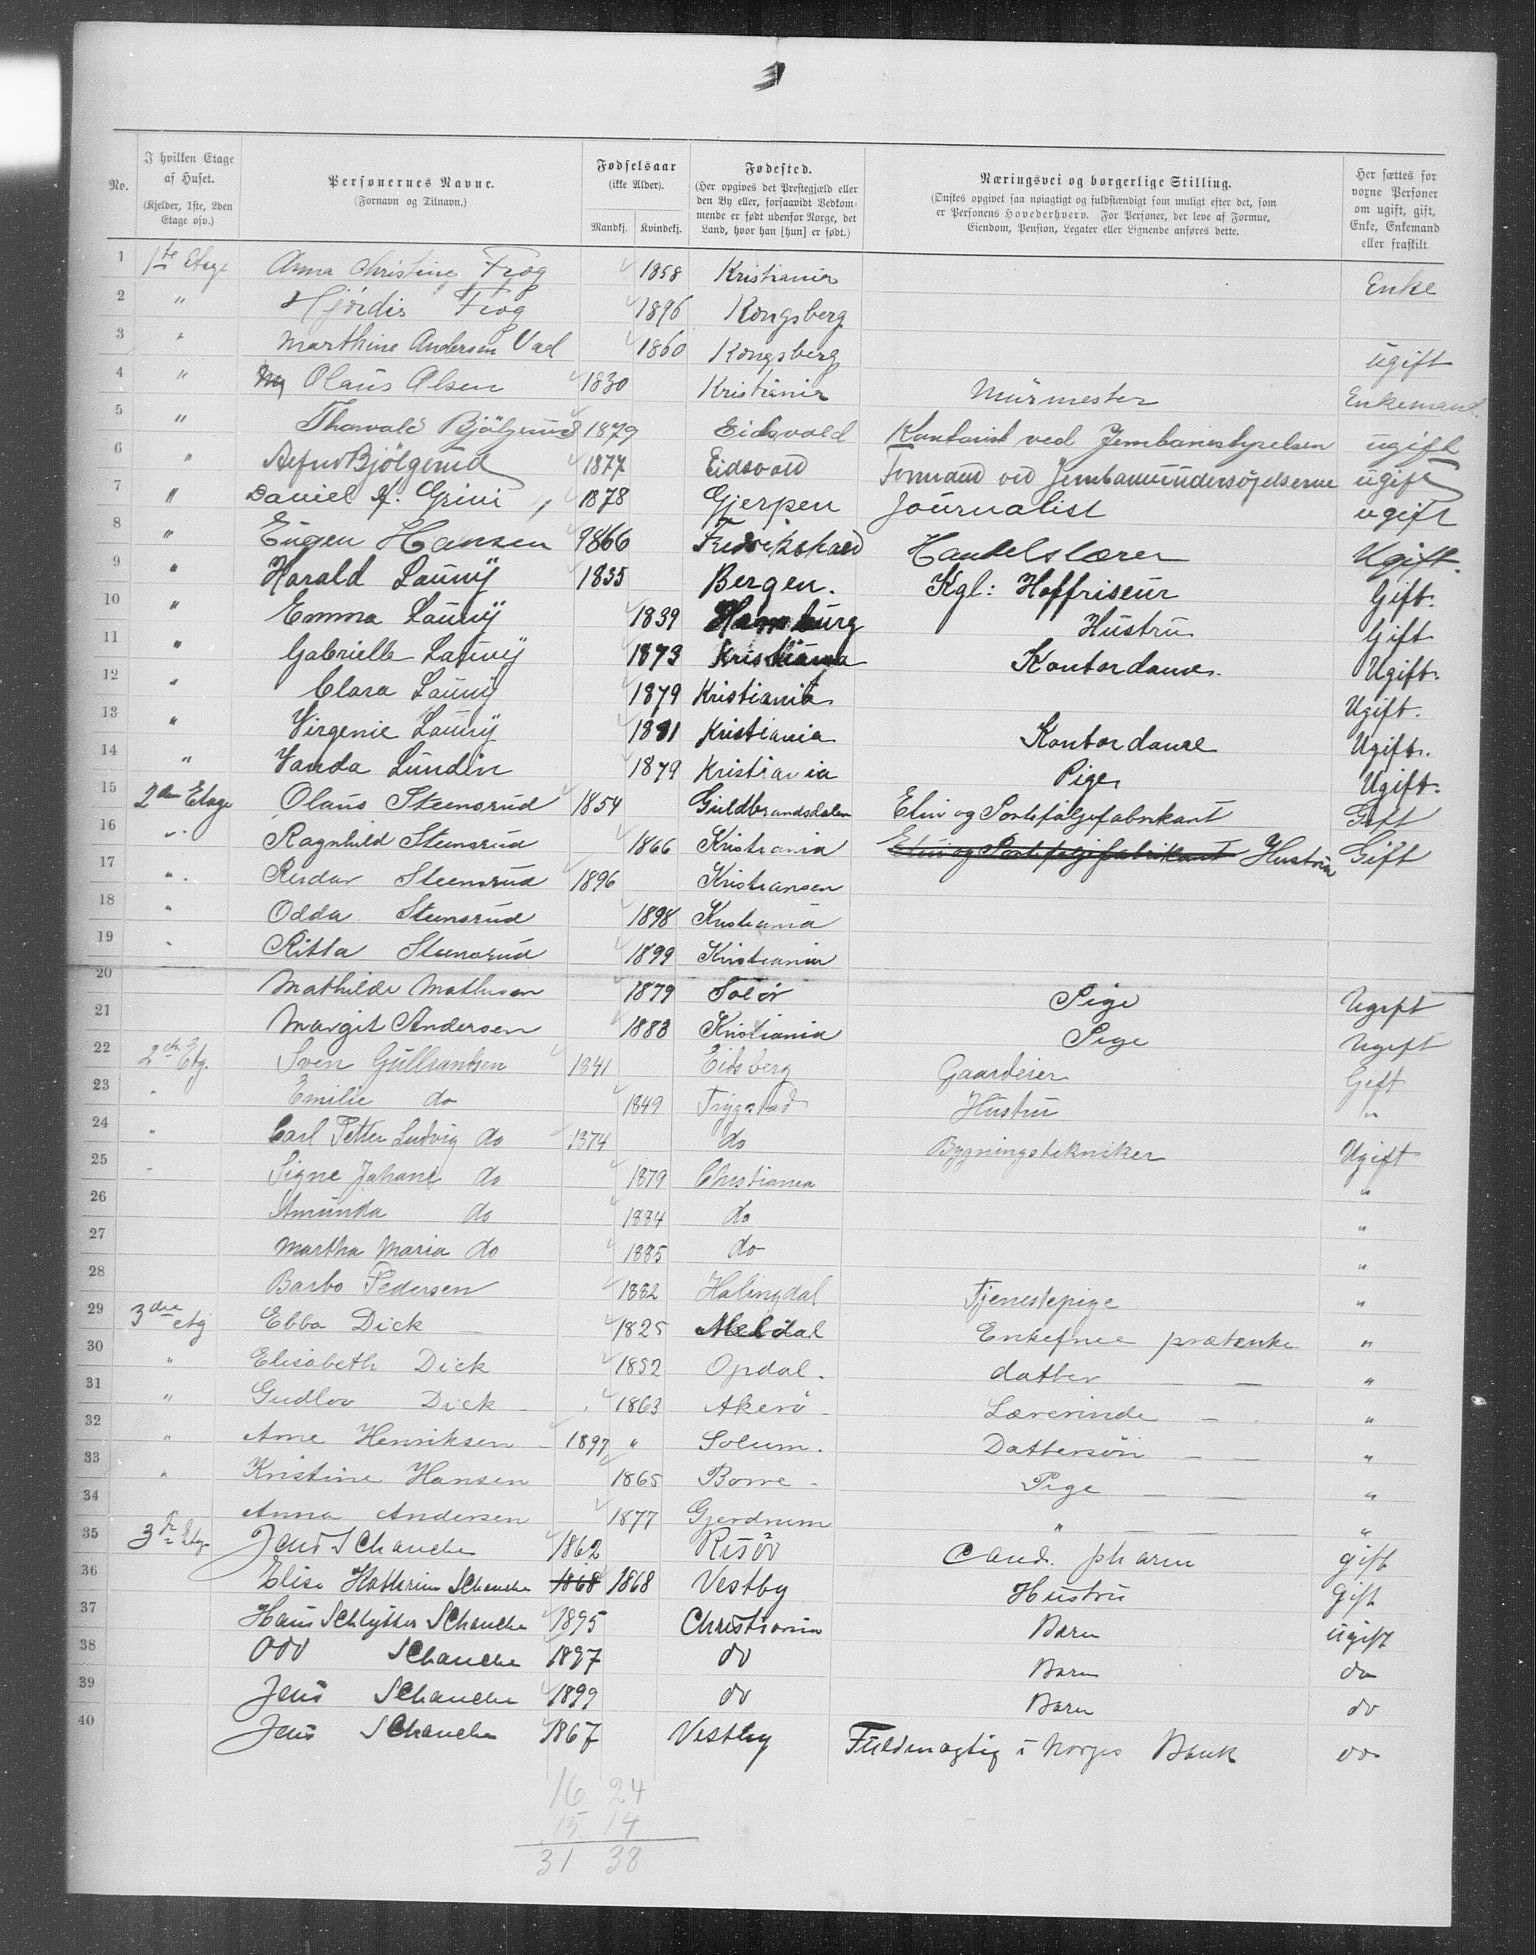 3
No.
I hvilken Etage af Huset. (Kjelder, 1ste, 2den Etage osv.)
Personernes Navne. (Fornavn og Tilnavn.)
Fødselsaar (ikke Alder).
Mandkj. Kvindekj.
Fødested. (Her opgives det Prestegjæld eller den By eller, forsaavidt Vedkommende er født udenfor Norge, det Land, hvor han [hun] er født.)
Næringsvei og borgerlige Stilling. (Ønskes opgivet saa nøiagtigt og fuldstændigt som muligt efter det, som er Personens Hovederhverv. For Personer, der leve af Formue, Eiendom, Pension, Legater eller Lignende anføres dette.
Her sættes for voxne Personer om ugift, gift, Enke, Enkemand eller fraskilt.
1 1ste Etage Anna Christine Frog 1858 Kristiania Enke
2 " Hjördis Frog 1896 Kongsberg
3 " Marthine Andersen Vad 1860 Kongsberg ugift
4 " Olaus Olsen 1830 Kristiania Mürmester Enkemand.
5 " Thorvald Bjölgerud 1879 Eidsvold Kontorist ved Jernbanestyrelsen ugift
6 " Bjölgerud 1877 Eidsvold Formand ved Jernbaneundersøgelserne ugift
7 " Daniel Grini 1878 Gjerpen Journalist ugift
8 " Eugen Hansen 1866 Fredrikshald Handelslærer Ugift.
9 " Harald Launij 1835 Bergen. Kgl: Hoffriseur Gift.
10 " Emma Launij 1839 Hamburg Hustru Gift
11 " Gabrielle Launij 1873 Kristiania Kontordame. Ugift.
12 " Clara Launij 1879 Kristiania Ugift.
13 " Virgenie Launij 1881 Kristiania Kontordame Ugift.
14 " Vanda Lundin 1879 Kristiania Pige Ugift.
15 2den Etage Olaus Steensrud 1854 Guldbrandsdalen Etui og Porteføljefabrikant Gift
16 " Ragnhild Steensrud 1866 Kristiania Etui og Porteføljefabrikant Hustru Gift
17 " Reidar Steensrud 1896 Kristiansen
18 " Odda Steensrud 1898 Kristiania
19 " Ritta Steensrud 1899 Kristiania
20 Mathilde Mathisen 1879 Solør Pige Ugift
21 Margit Andersen 1883 Kristiania Pige Ugift
22 2den Etg. Sven Gullrandsen 1841 Eidsberg Gaardeier Gift
23 " Emilie do 1849 Trygstad Hustru "
24 " Carl Petter Ludvig do 1874 do Bygningstekniker Ugift
25 " Signe Johane do 1879 Christiania "
26 Amunda do 1884 do "
27 Martha Maria do 1885 do "
28 Barbo Pedersen 1882 Halingdal Tjenestepige "
29 3die etg Ebba Dick 1825 Meldal Enkefrue "
30 " Elisabeth Dick 1852 Opdal. datter "
31 " Gudlov Dick 1863 Akerø Lærerinde "
32 " Arne Henriksen 1897 " Solum. Dattersön "
33 " Kristine Hansen 1865 Borre Pige "
34 " Anna Andersen 1877 Gjerdrum " "
35 3die Etage Jens Schanche 1862 Risør Cand. pharm gift
36 Elise Kathrine Schanche 1868 1868 Vestby Hustru Gift
37 Hans Schlytter Schanche 1895 Christiania Barn ugift
38 Odd Schanche 1897 do Barn do
39 Jens Schanche 1899 do Barn do
40 Jens Schanche 1867 Vestby Fuldmægtig i Norges Bank do
16 24
15 14
31 38